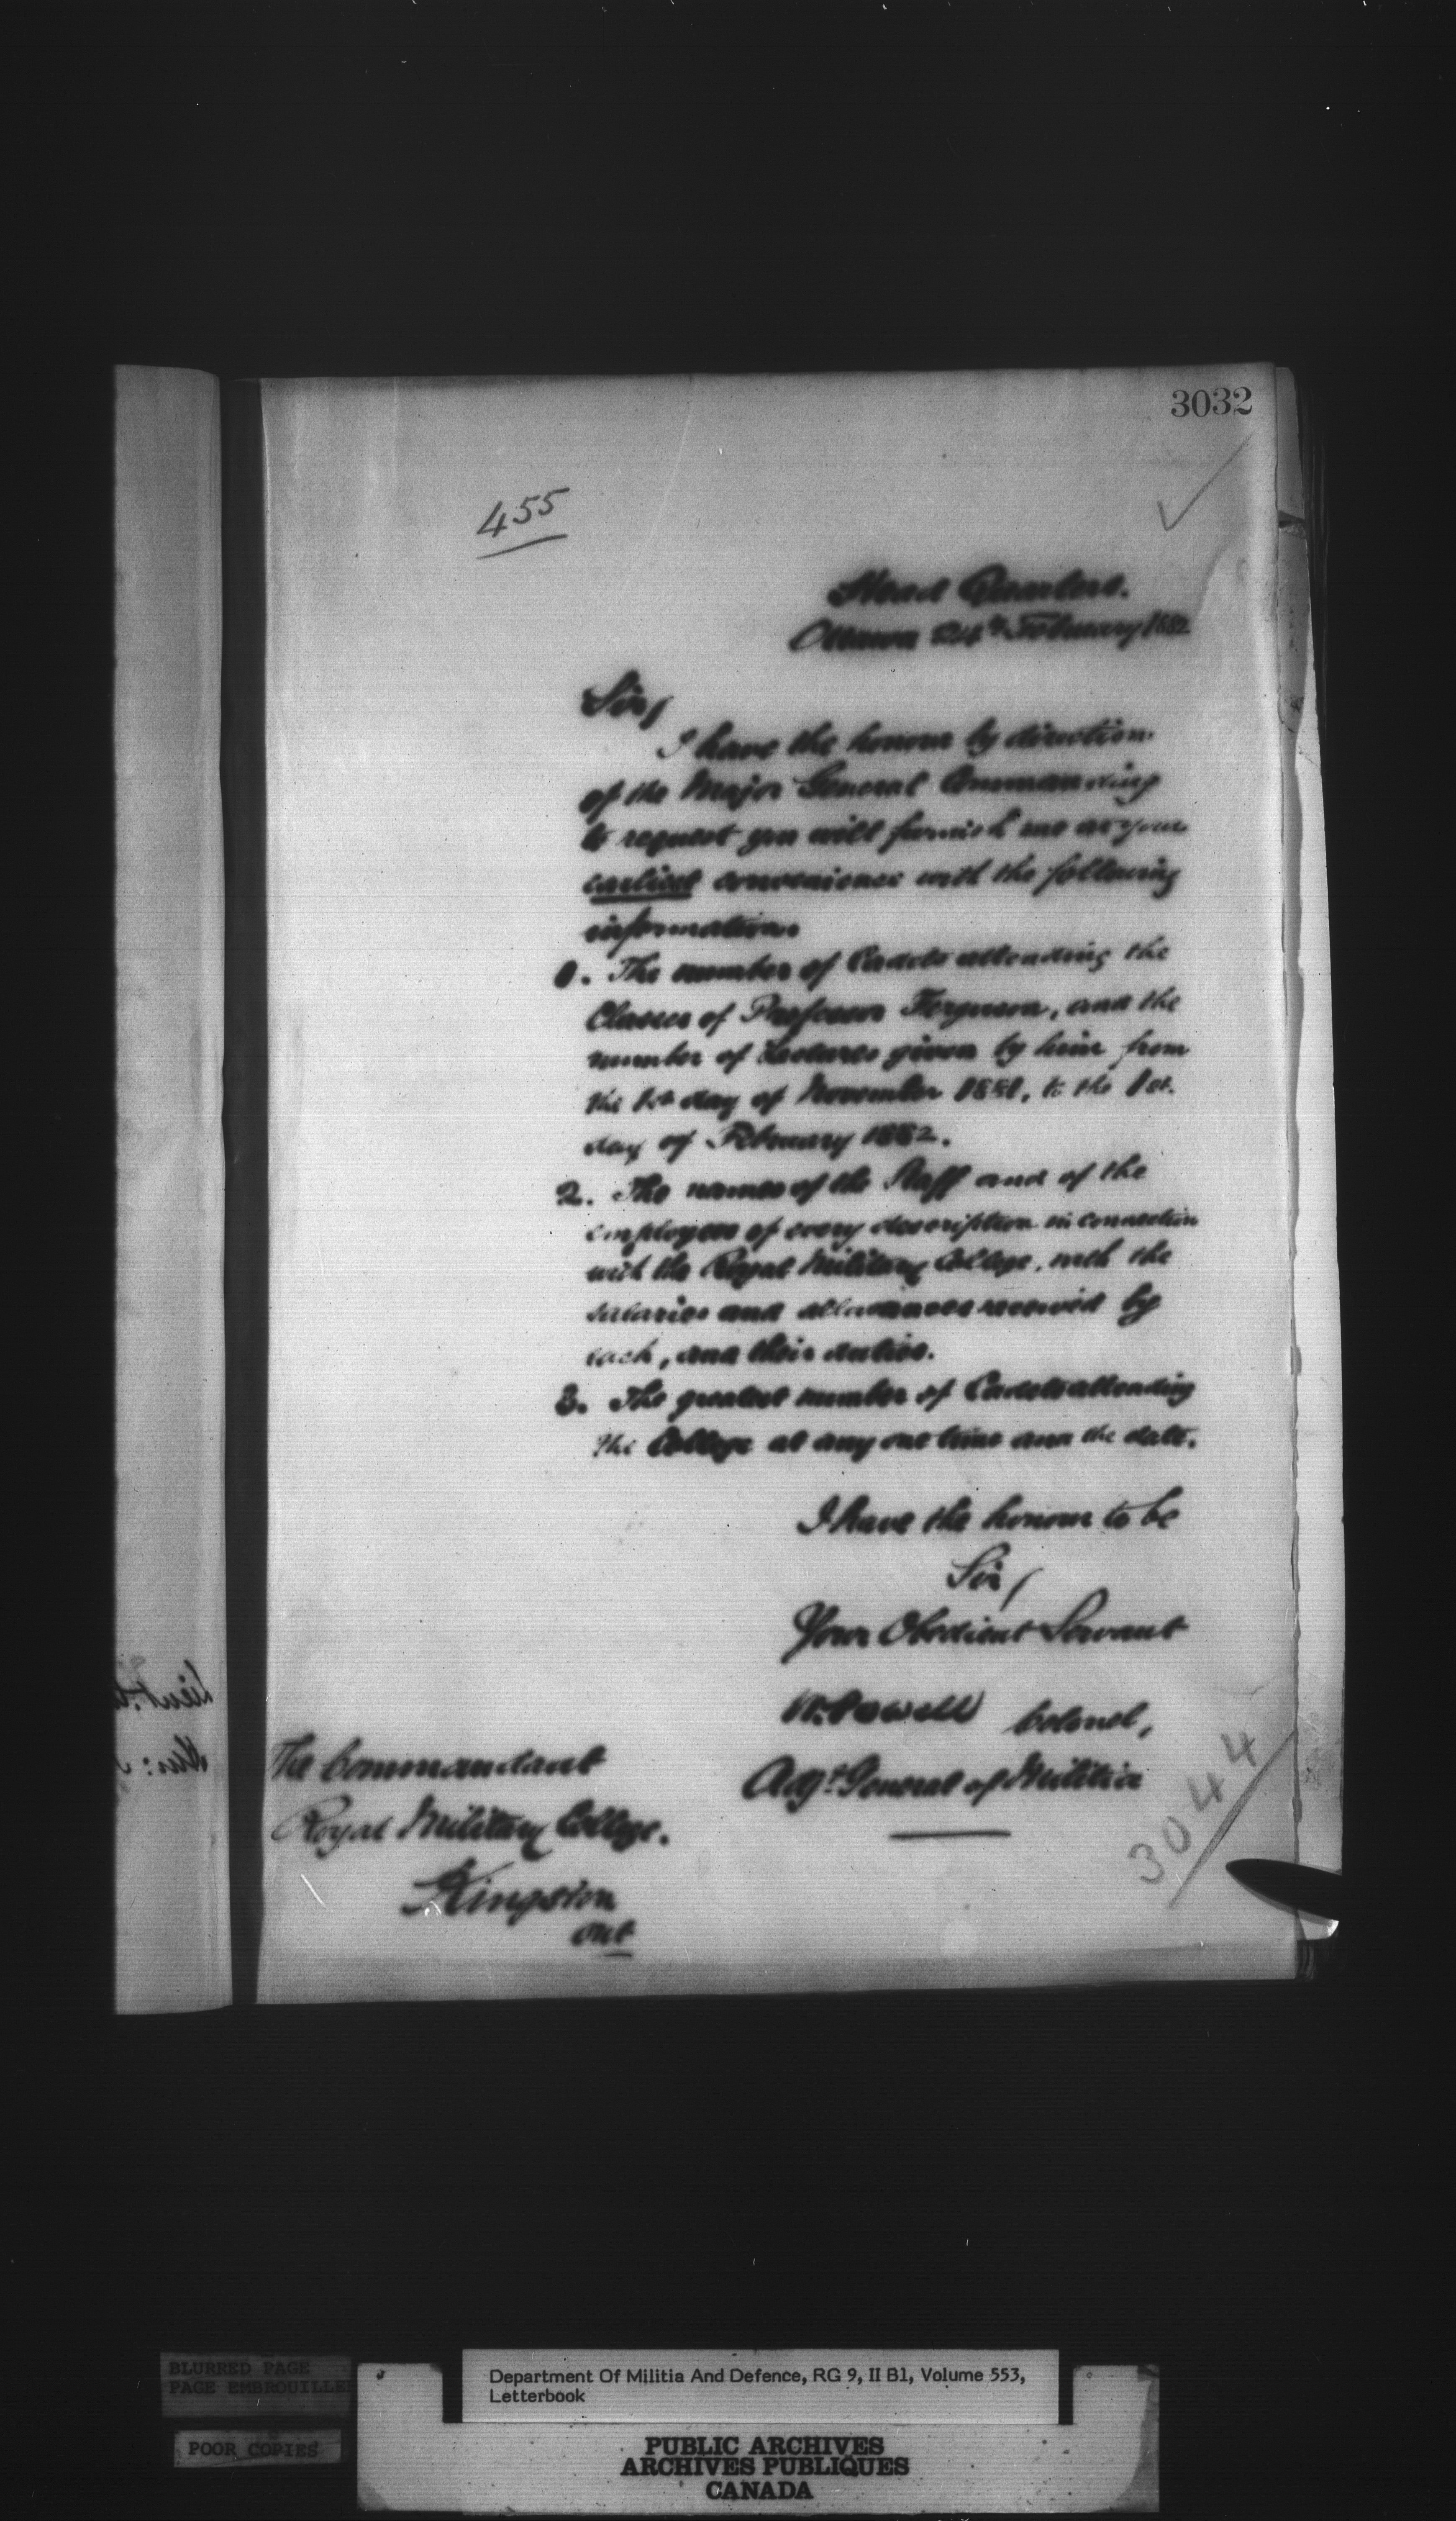 3032
455
Head Quarters.
Ottawa 24th February 1882
Sir,
I have the honour by direction
of the Major General Commanding
to request you will furnish me at your
earliest convenience with the following
information
1. The number of Cadets attending the
Classes of Professor Ferguson, and the
number of Lectures given by him from
the 1st day of November 1881, to the 1st.
day of February 1882.
2. The names of the Staff and of the
employees of every description in connection
with the Royal Military College, with the
salaries and allowances received by
each, and their duties.
3. The greatest number of Cadets attending
the College at any one time and the date.
I have the honour to be
Sir,
Your Obedient Servant
W. Powell Colonel,
Adjt. General of Militia
The Commandant
Royal Military College.
Kingston
Ont
3044
BLURRED PAGE
PAGE EMBROUILLE
POOR COPIES
Department Of Militia And Defence, RG 9, II B1, Volume 553,
Letterbook
PUBLIC ARCHIVES
ARCHIVES PUBLIQUES
CANADA